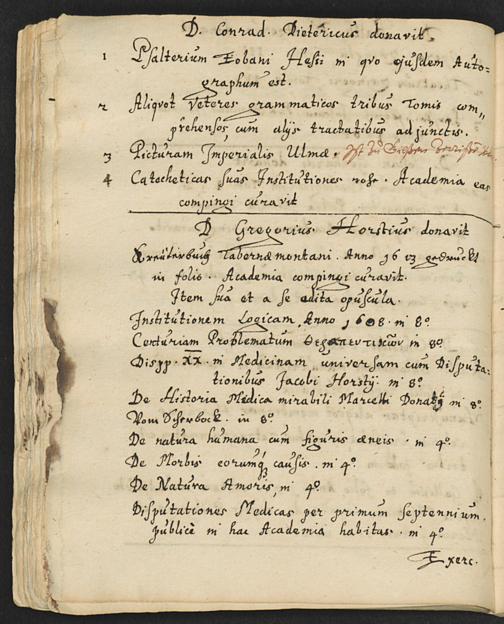 D. Conrad. Dietericus donavit
1 Psalterium Eobani Hessi in qvo ejusdem Auto-
graphum est.
2 Aliqvot veteres grammaticos tribus Tomis com„
prehensos, cum alijs tractatibus adjunctis.
3 Picturam Imperialis Ulmæ. Ist zu
4 Catecheticas suas Institutiones Academia eas
compingi curavit
D Gregorius Horstius donavit
Kreüterbuch Tabernæmontani. Anno 16 03 gedruckt
in folio. Academia compingi curavit.
Item sua et a se edita opuscula.
Institutionem Logicam, Anno 1608. in 8º
Centuriam Problematum θεραπευτικῶν in 8º
Dispp. XX. in Medicinam universam cum Disputa-
tionibus Jacobi Horstij in 8º
De Historia Medica mirabili Marcelli Donatj in 8º
Vom Scherbock. in 8º.
De natura humana cum figuris æneis. in 4º.
De Morbis eorumq causis. in 4º.
De Natura Amoris, in 4º.
Disputationes Medicas per primum septennium.
publicè in hac Academia habitas. in 4º
Exerc.